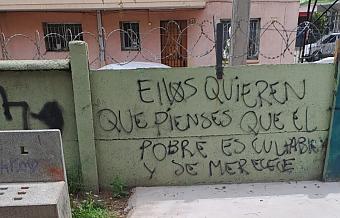 EllOS QUIEREN
QUE PIENSES QUE EL
POBRE ES CULPABLE
Y SE MERECE